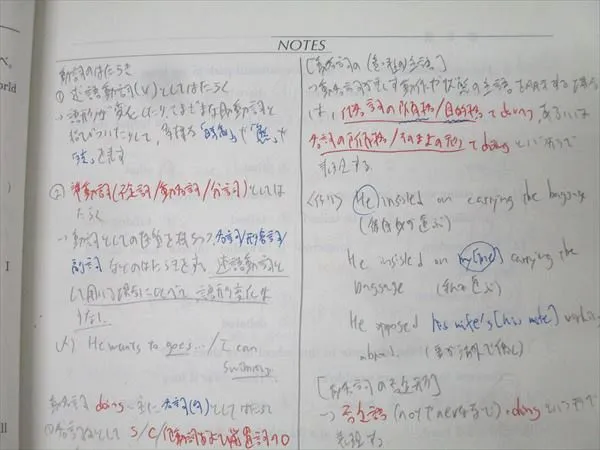 NOTES
動詞のはたらき
① 述語動詞(V)としてはたらく
→ 語形が変化したり、さまざまな助動詞と
結びついたりして、多様な「時制」や「態」や
「法」を表す
② 準動詞(不定詞/動名詞/分詞)としては
たらく
→ 動詞としての性質を持ちつつ、名詞/形容詞/
副詞などのはたらきをする。述語動詞と
して用いる場合にくらべて語形変化は
少ない
He wants to goes… / I can
swimming
動名詞 doing → 主に名詞(句)としてはたらく
S/C/
[動名詞の(意味上の主語)]
→ 動名詞が表す動作や状態の主語を明示する場合
は、代名詞の所有格/目的格 + doing あるいは
名詞の所有格/そのままの形 + doing という形で
表現する。
(例) He insisted on carrying the baggage
(彼自身が運ぶ)
He insisted on my[me] carrying the
baggage (私が運ぶ)
He opposed his wife's[his wife] working
abroad. (妻が海外で働く)
[動名詞の否定形]
→ 否定語(notやneverなど) + doing という形で
表現する